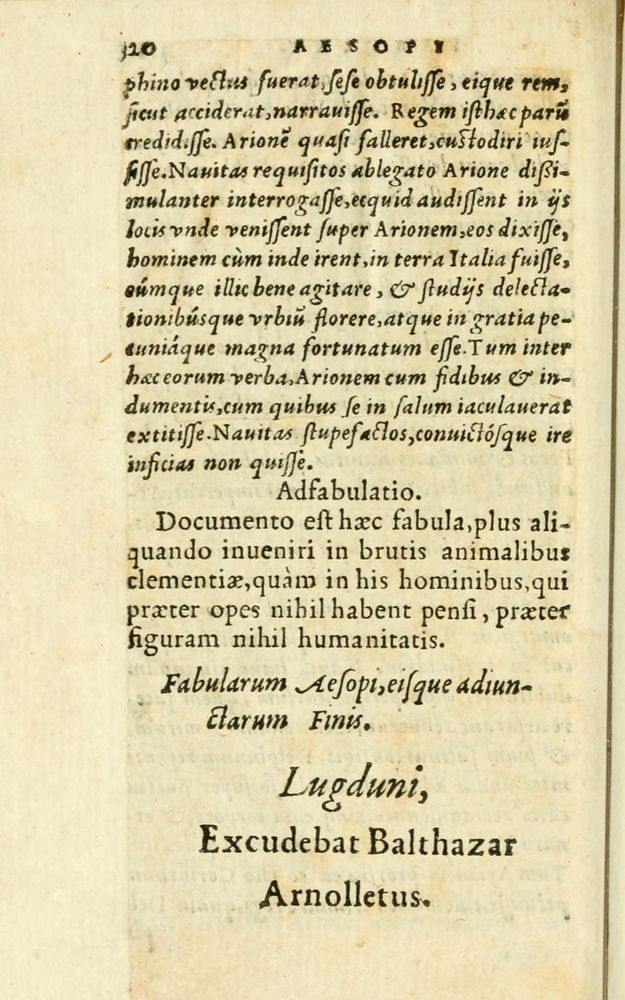 320 AESOPI
phino vectus fuerat, sese obtulisse, eique rem,
sicut acciderat, narrauisse. Regem isthæc parũ
credidisse. Arionẽ quasi falleret, custodiri ius-
sisse. Nauitas requisitos ablegato Arione dißi-
mulanter interrogasse, ecquid audissent in ijs
locis vnde venissent super Arionem, eos dixisse,
hominem cùm inde irent, in terra Italia fuisse,
eúmque illic bene agitare, & studijs delecta-
tionibúsque vrbiũ florere, atque in gratia pe-
cuniáque magna fortunatum esse. Tum inter
hæc eorum verba, Arionem cum fidibus & in-
dumentis, cum quibus se in salum iaculauerat
extitisse. Nauitas stupefactos, conuictósque ire
inficias non quisse.
Adfabulatio.
Documento est hæc fabula, plus ali-
quando inueniri in brutis animalibus
clementiæ, quàm in his hominibus, qui
præter opes nihil habent pensi, præter
figuram nihil humanitatis.
Fabularum Aesopi, eisque adiun-
ctarum Finis.
Lugduni,
Excudebat Balthazar
Arnolletus.